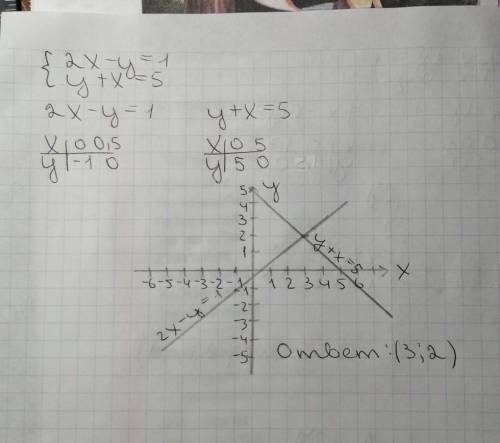 { 2x-y=1
{ y+x=5
2x-y=1 y+x=5
x 0 0,5 x 0 5
y -1 0 y 5 0
y
5
4
3
2
1
y+x=5
-6 -5 -4 -3 -2 -1 1 2 3 4 5 6 x
-1
-2
-3
-4
-5
2x-y=
Ответ:(3;2)